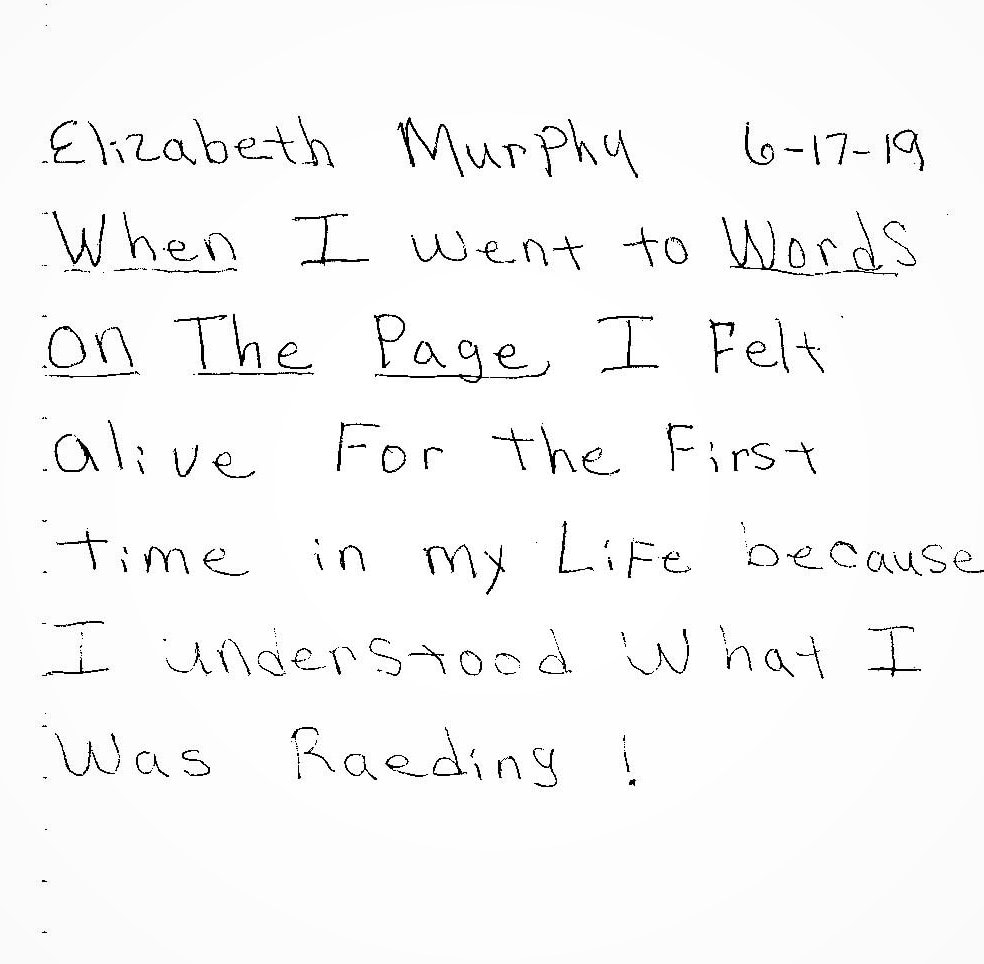 Elizabeth Murphy 6-17-19
When I went to Words
on The Page, I Felt
alive For the First
time in my LiFe because
I understood What I
Was Raeding !